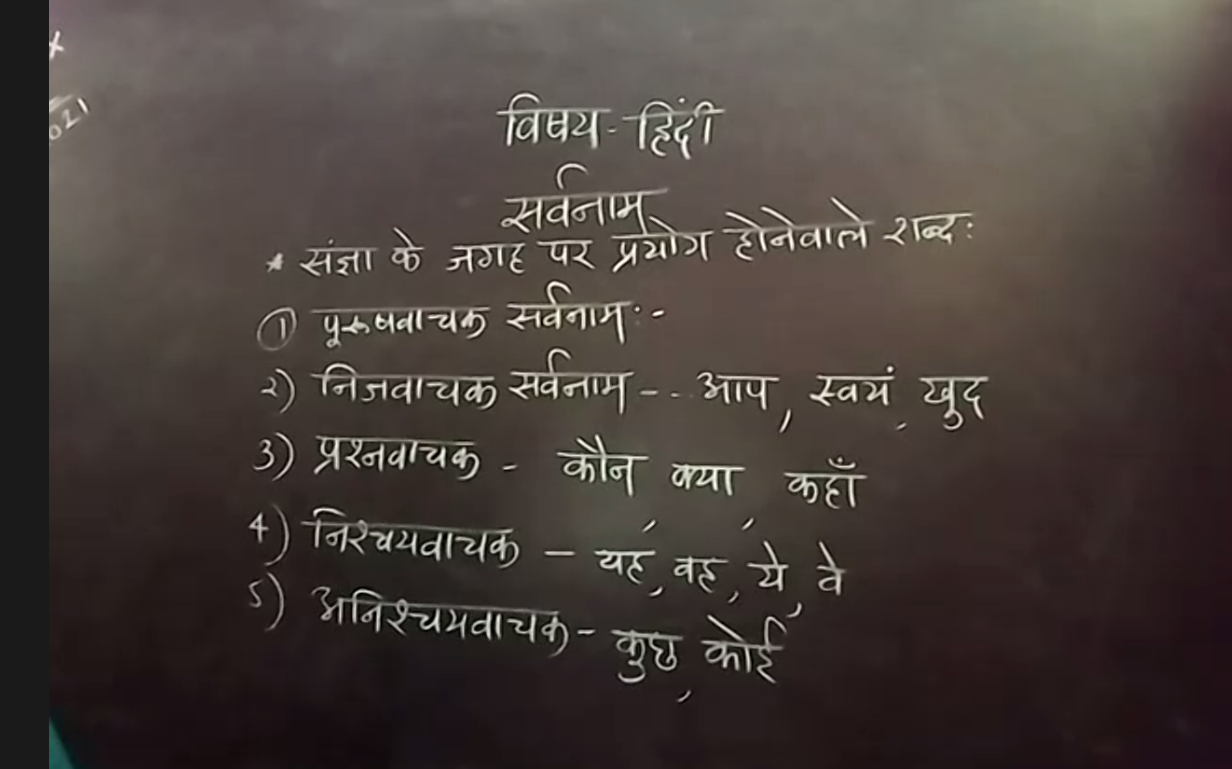 x
021
विषय - हिंदी
सर्वनाम
* संज्ञा के जगह पर प्रयोग होनेवाले शब्द:
① पुरूषवाचक सर्वनाम:-
२) निजवाचक सर्वनाम - आप, स्वयं, खुद
3) प्रश्नवाचक - कौन, क्या, कहाँ
4) निश्चयवाचक - यह, वह, ये, वे
5) अनिश्चयवाचक - कुछ, कोई